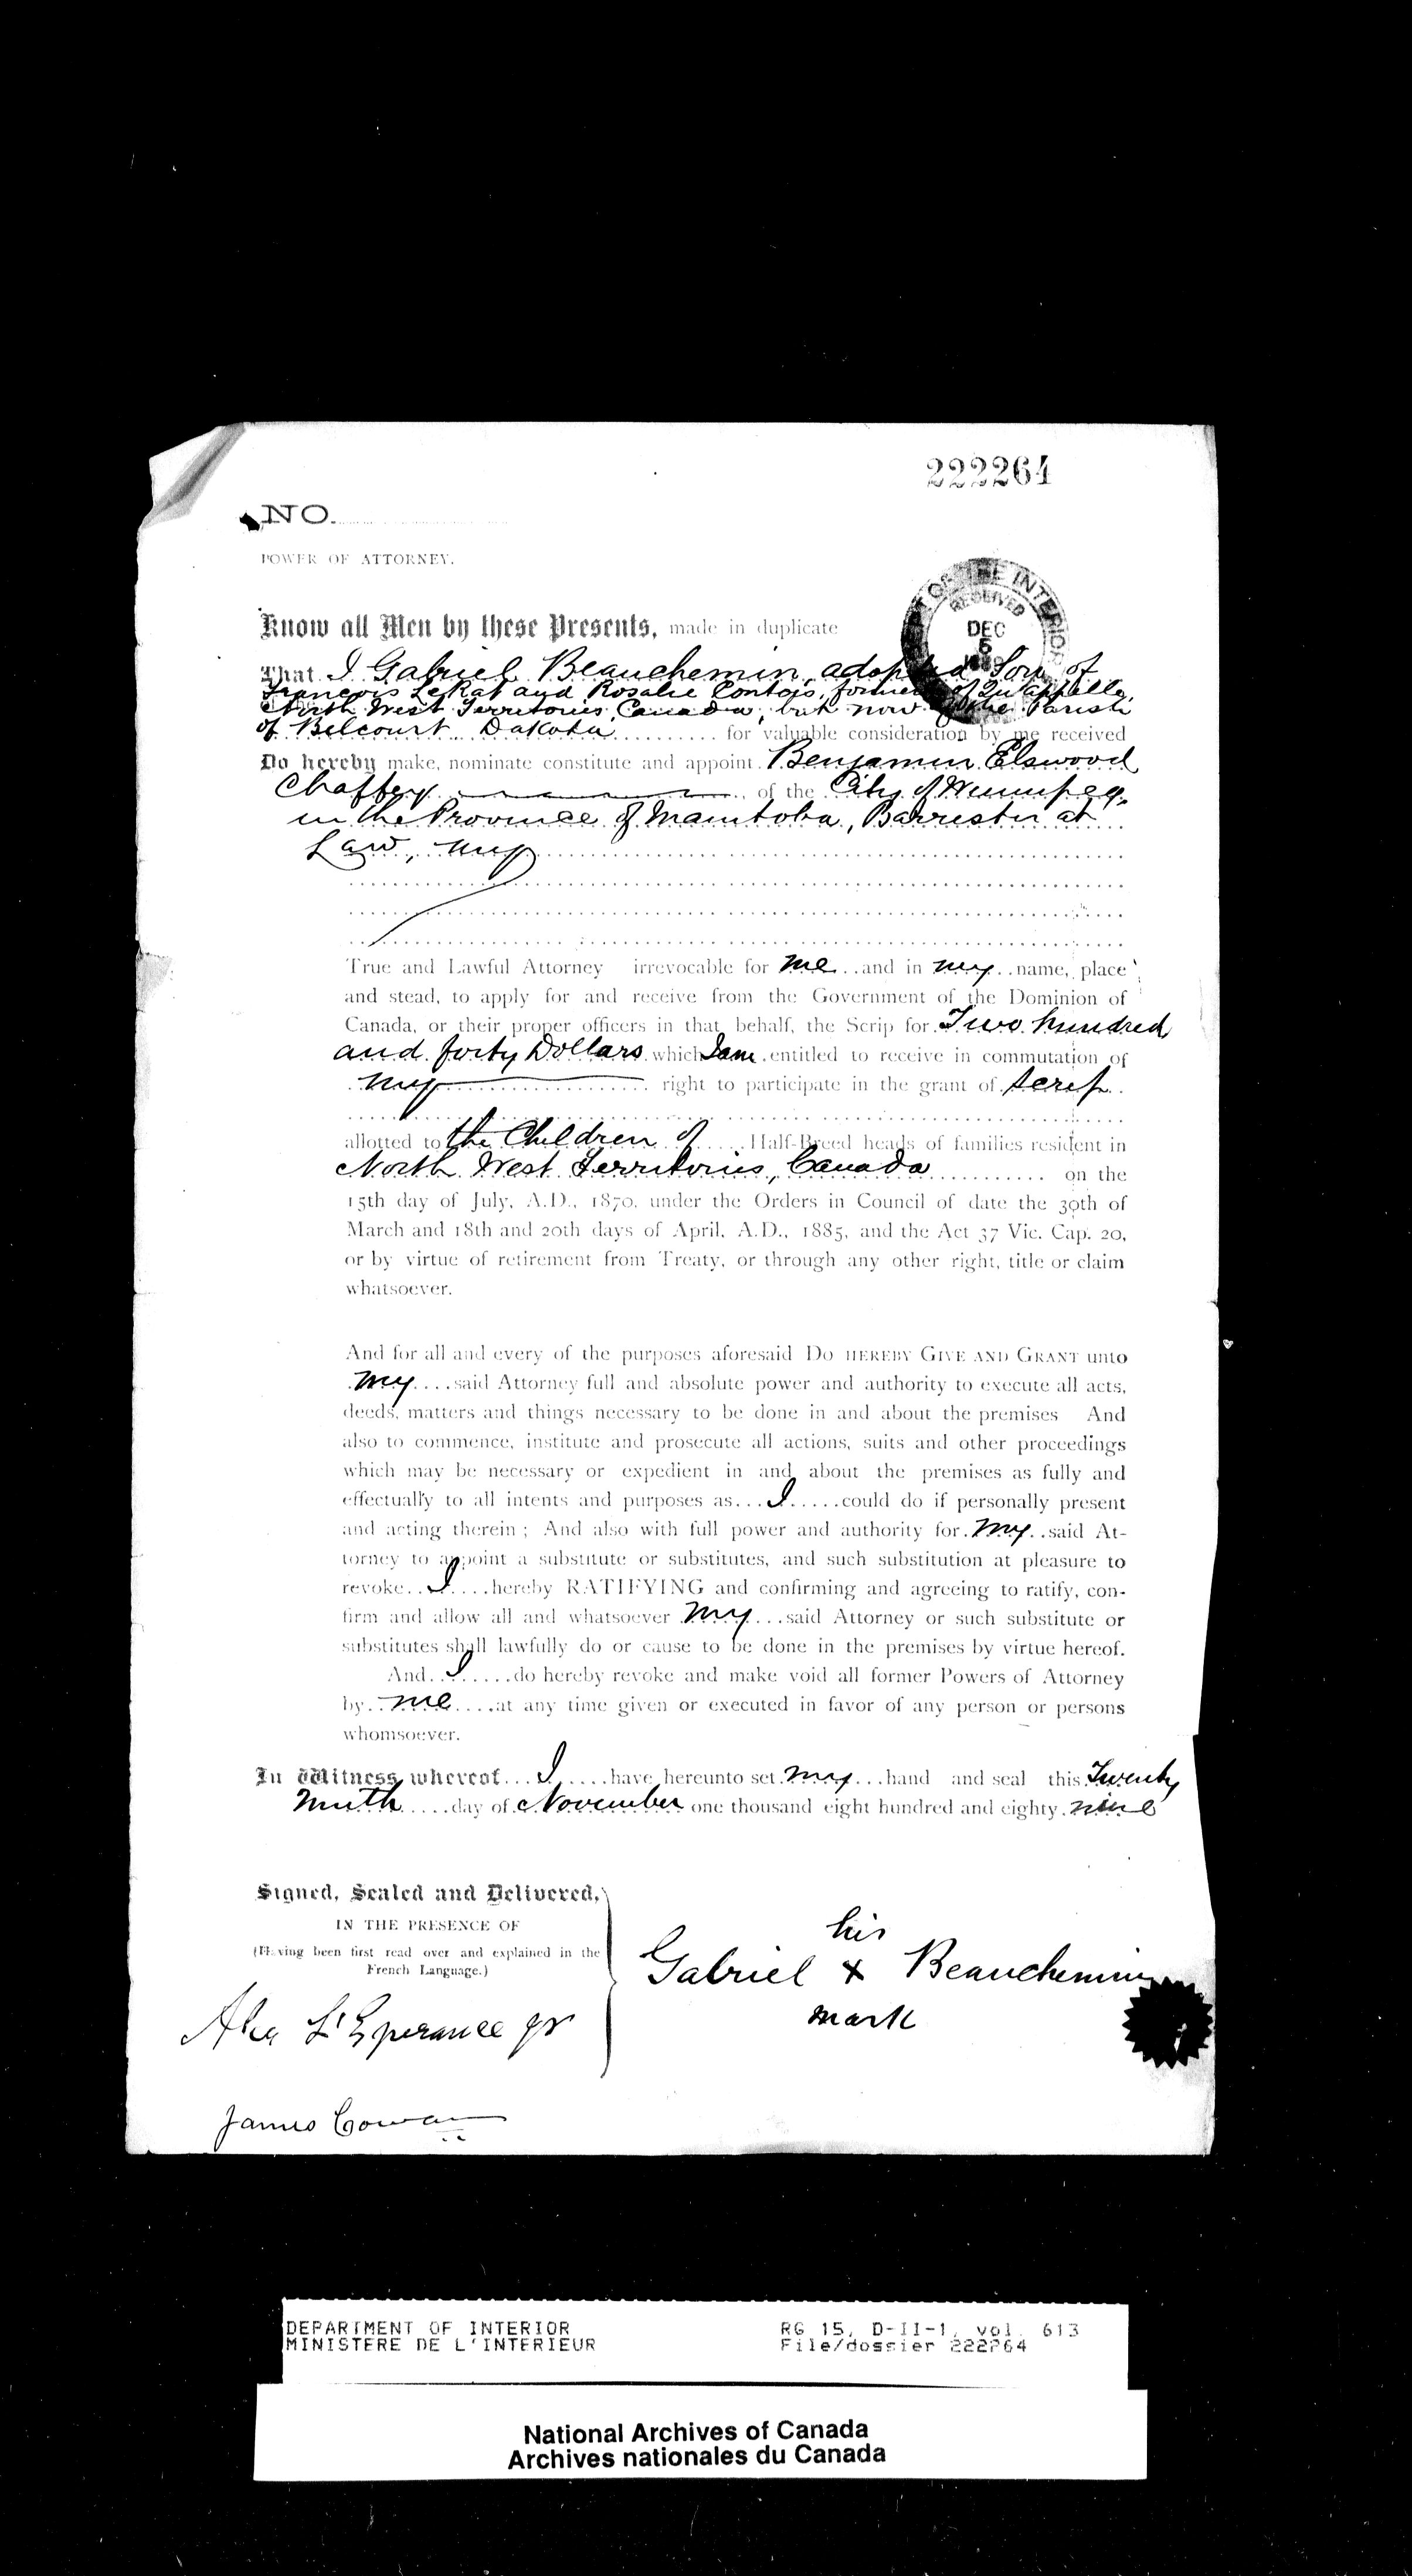 222264
NO.
POWER OF ATTORNEY.
DEPT OF THE INTERIOR
RECEIVED
DEC
5
1889
Know all Men by these Presents, made in duplicate
That I Gabriel Beauchemin, adopted Son of
Francois LeRat and Rosalie Contois, formerly of Qu'Appelle,
North West Territories, Canada, but now of the Parish
of Belcourt Dakota for valuable consideration by me received
Do hereby make, nominate constitute and appoint Benjamin Elswood
Chaffey of the City of Winnipeg,
in the Province of Manitoba, Barrister at
Law, my
True and Lawful Attorney irrevocable for me and in my name, place
and stead, to apply for and receive from the Government of the Dominion of
Canada, or their proper officers in that behalf, the Scrip for Two hundred
and forty Dollars which I am entitled to receive in commutation of
my right to participate in the grant of scrip
allotted to the Children of Half-Breed heads of families resident in
North West Territories, Canada on the
15th day of July, A.D., 1870, under the Orders in Council of date the 30th of
March and 18th and 20th days of April, A.D., 1885, and the Act 37 Vic. Cap. 20,
or by virtue of retirement from Treaty, or through any other right, title or claim
whatsoever.
And for all and every of the purposes aforesaid DO HEREBY GIVE AND GRANT unto
my said Attorney full and absolute power and authority to execute all acts,
deeds, matters and things necessary to be done in and about the premises And
also to commence, institute and prosecute all actions, suits and other proceedings
which may be necessary or expedient in and about the premises as fully and
effectually to all intents and purposes as I could do if personally present
and acting therein; And also with full power and authority for my said At-
torney to appoint a substitute or substitutes, and such substitution at pleasure to
revoke I hereby RATIFYING and confirming and agreeing to ratify, con-
firm and allow all and whatsoever my said Attorney or such substitute or
substitutes shall lawfully do or cause to be done in the premises by virtue hereof.
And I do hereby revoke and make void all former Powers of Attorney
by me at any time given or executed in favor of any person or persons
whomsoever.
In Witness whereof I have hereunto set my hand and seal this Twenty
Ninth day of November one thousand eight hundred and eighty nine
Signed, Sealed and Delivered,
IN THE PRESENCE OF
(Having been first read over and explained in the
French Language.)
his
Gabriel X Beauchemin
mark
Alex L'Esperance jr
James Cowan
DEPARTMENT OF INTERIOR
MINISTERE DE L'INTERIEUR
RG 15, D-II-1, vol. 613
File/dossier 222264
National Archives of Canada
Archives nationales du Canada